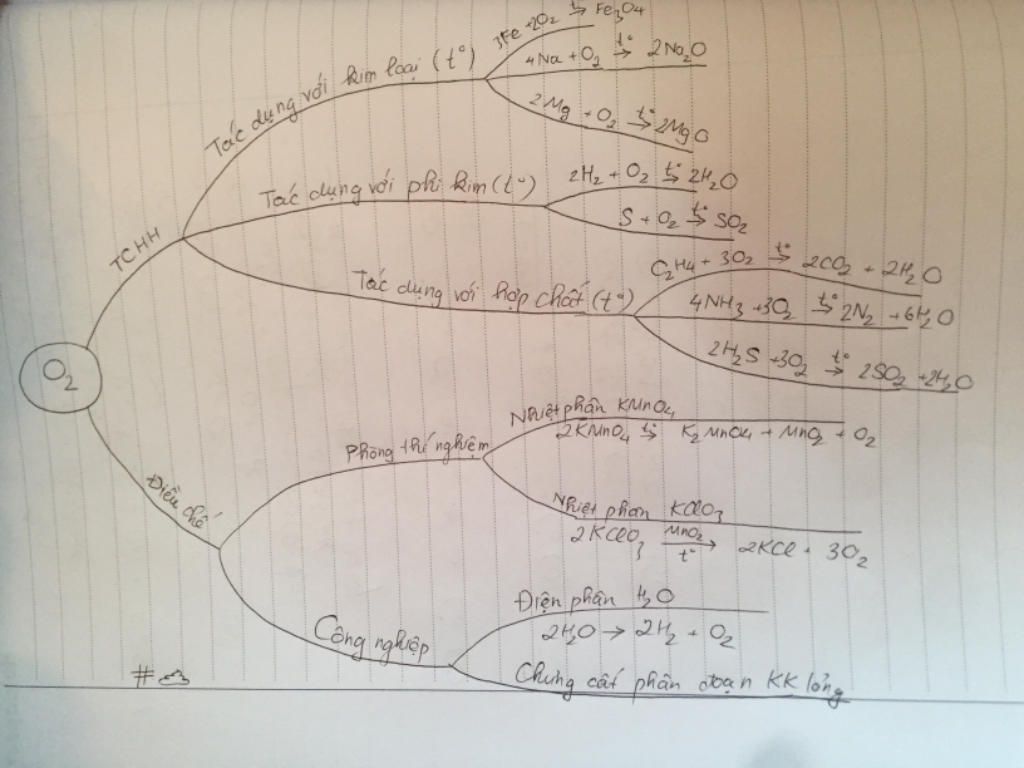 O₂
TCHH
Tác dụng với kim loại (t°)
3Fe + 2O₂ t°→ Fe₃O₄
4Na + O₂ t°→ 2Na₂O
2Mg + O₂ t°→ 2MgO
Tác dụng với phi kim (t°)
2H₂ + O₂ t°→ 2H₂O
S + O₂ t°→ SO₂
Tác dụng với hợp chất (t°)
C₂H₄ + 3O₂ t°→ 2CO₂ + 2H₂O
4NH₃ + 3O₂ t°→ 2N₂ + 6H₂O
2H₂S + 3O₂ t°→ 2SO₂ + 2H₂O
Điều chế
Phòng thí nghiệm
Nhiệt phân KMnO₄
2KMnO₄ t°→ K₂MnO₄ + MnO₂ + O₂
Nhiệt phân KClO₃
2KClO₃ MnO₂→ t° 2KCl + 3O₂
Công nghiệp
Điện phân H₂O
2H₂O → 2H₂ + O₂
Chưng cất phân đoạn KK lỏng
#